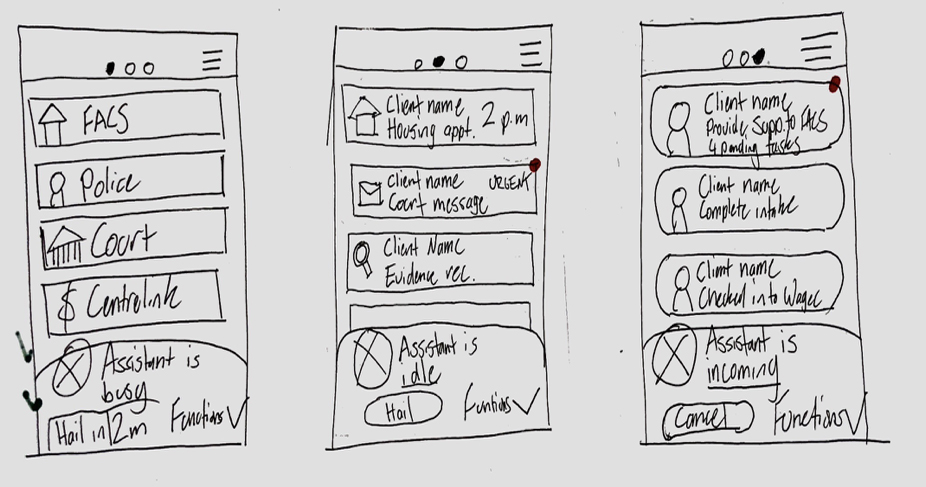 FACS
Police
Court
Centrelink
Assistant is
busy
Hail in 2m
Functions
Client name
Housing appt. 2 p.m
Client name URGENT
Court message
Client Name
Evidence rec.
Assistant is
idle
Hail
Funtions
Client name
Provide Supp. to FACS
4 pending tasks
Client name
Complete intake
Client name
Checked into
Assistant is
incoming
Cancel
Functions